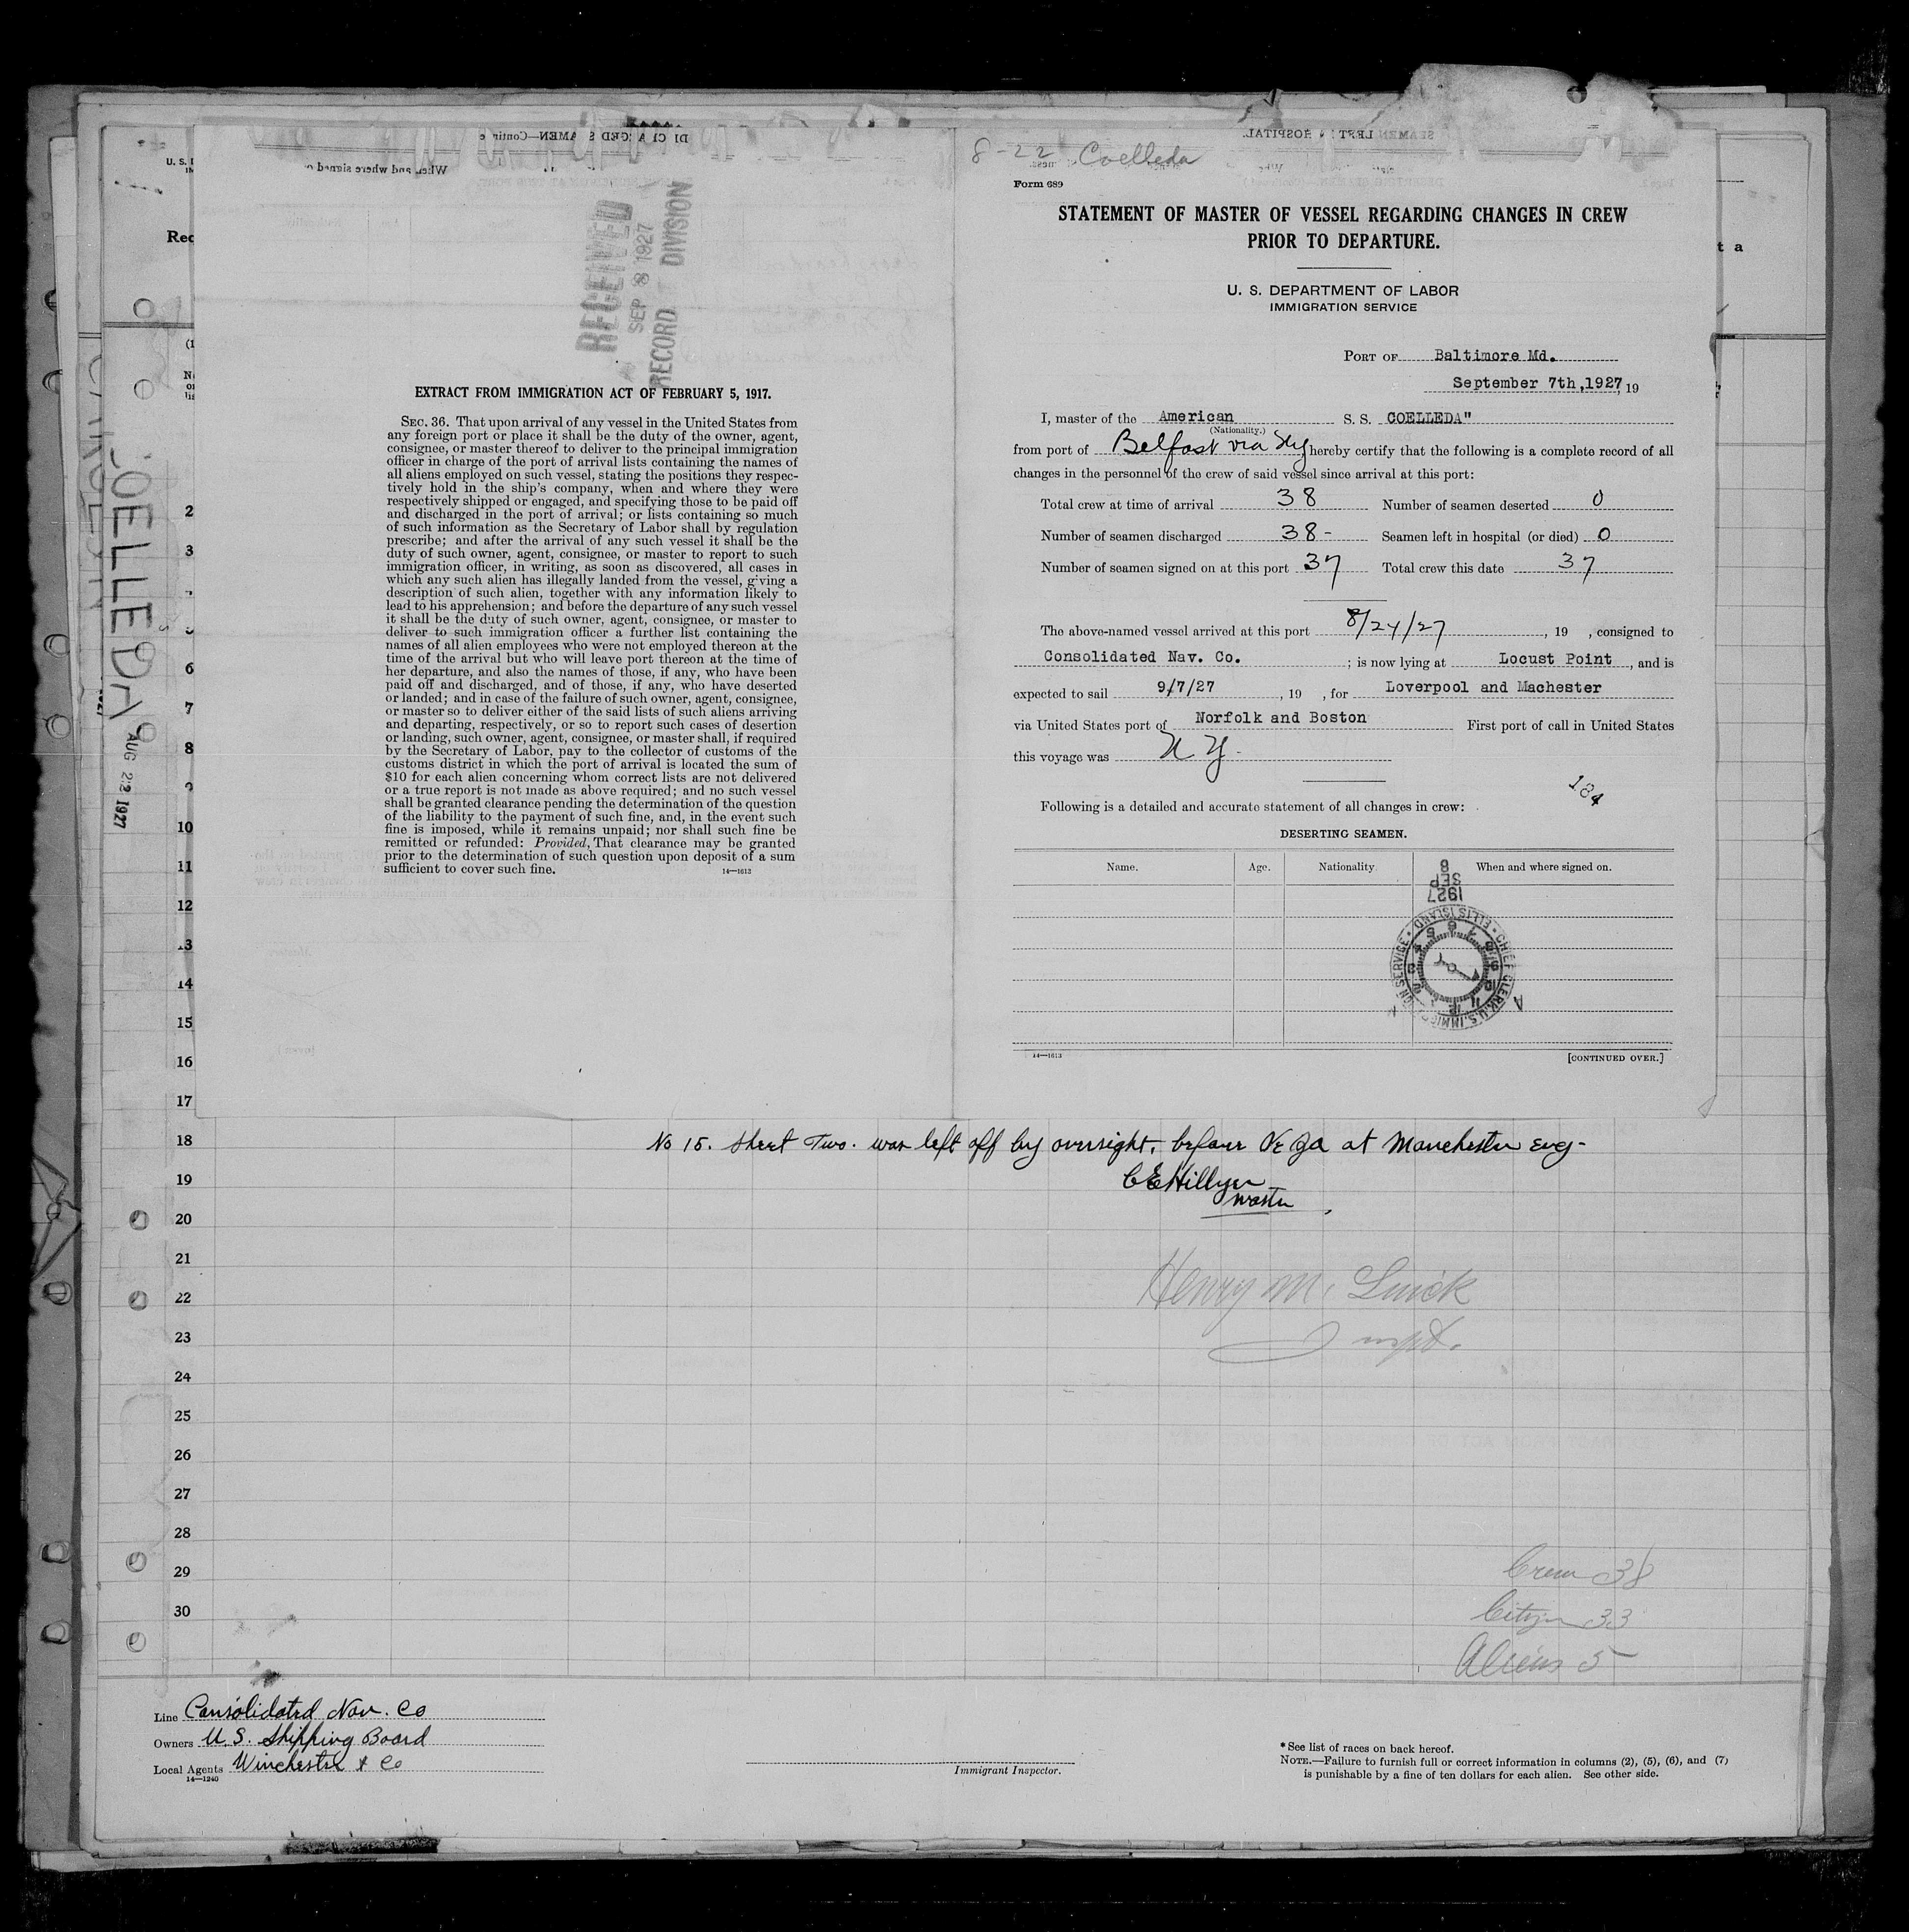 RECEIVED
SEP 8 1927
RECORD DIVISION
EXTRACT FROM IMMIGRATION ACT OF FEBRUARY 5, 1917.
SEC. 36. That upon arrival of any vessel in the United States from
any foreign port or place it shall be the duty of the owner, agent,
consignee, or master thereof to deliver to the principal immigration
officer in charge of the port of arrival lists containing the names of
all aliens employed on such vessel, stating the positions they respec-
tively hold in the ship's company, when and where they were
respectively shipped or engaged, and specifying those to be paid off
and discharged in the port of arrival; or lists containing so much
of such information as the Secretary of Labor shall by regulation
prescribe; and after the arrival of any such vessel it shall be the
duty of such owner, agent, consignee, or master to report to such
immigration officer, in writing, as soon as discovered, all cases in
which any such alien has illegally landed from the vessel, giving a
description of such alien, together with any information likely to
lead to his apprehension; and before the departure of any such vessel
it shall be the duty of such owner, agent, consignee, or master to
deliver to such immigration officer a further list containing the
names of all alien employees who were not employed thereon at the
time of the arrival but who will leave port thereon at the time of
her departure, and also the names of those, if any, who have been
paid off and discharged, and of those, if any, who have deserted
or landed; and in case of the failure of such owner, agent, consignee,
or master so to deliver either of the said lists of such aliens arriving
and departing, respectively, or so to report such cases of desertion
or landing, such owner, agent, consignee, or master shall, if required
by the Secretary of Labor, pay to the collector of customs of the
customs district in which the port of arrival is located the sum of
$10 for each alien concerning whom correct lists are not delivered
or a true report is not made as above required; and no such vessel
shall be granted clearance pending the determination of the question
of the liability to the payment of such fine, and, in the event such
fine is imposed, while it remains unpaid; nor shall such fine be
remitted or refunded: Provided, That clearance may be granted
prior to the determination of such question upon deposit of a sum
sufficient to cover such fine.
14—1613
8-22 Coelleda
Form 689
STATEMENT OF MASTER OF VESSEL REGARDING CHANGES IN CREW
PRIOR TO DEPARTURE.
U. S. DEPARTMENT OF LABOR
IMMIGRATION SERVICE
PORT OF Baltimore Md.
September 7th,1927, 19
I, master of the American S. S. COELLEDA"
(Nationality.)
from port of Belfast via NY hereby certify that the following is a complete record of all
changes in the personnel of the crew of said vessel since arrival at this port:
Total crew at time of arrival 38 Number of seamen deserted 0
Number of seamen discharged 38- Seamen left in hospital (or died) 0
Number of seamen signed on at this port 37 Total crew this date 37
The above-named vessel arrived at this port 8/24/27, 19 , consigned to
Consolidated Nav. Co. ; is now lying at Locust Point, and is
expected to sail 9/7/27, 19 , for Loverpool and Machester
via United States port of Norfolk and Boston First port of call in United States
this voyage was N Y-
184
Following is a detailed and accurate statement of all changes in crew:
DESERTING SEAMEN.
Name. Age. Nationality When and where signed on.
1927
SEP
8
CHIEF CLERK, U.S. IMMIGRATION SERVICE • ELLIS ISLAND •
14—1613
[CONTINUED OVER.]
COELLEDA
AUG 22 1927
2
3
6
7
8
10
11
12
13
14
15
16
17
18
19
20
21
22
23
24
25
26
27
28
29
30
No 15. Sheet Two. was left off by oversight, before at Manchester Eng-
C E Hillyer
Master
Henry M.
Inspt.
Crew 38
Citzn 33
Aliens 5
Line Consolidated Nav. Co
Owners U.S. Shipping Board
Local Agents Winchester & Co
14—1240
Immigrant Inspector.
* See list of races on back hereof.
NOTE.—Failure to furnish full or correct information in columns (2), (5), (6), and (7)
is punishable by a fine of ten dollars for each alien. See other side.